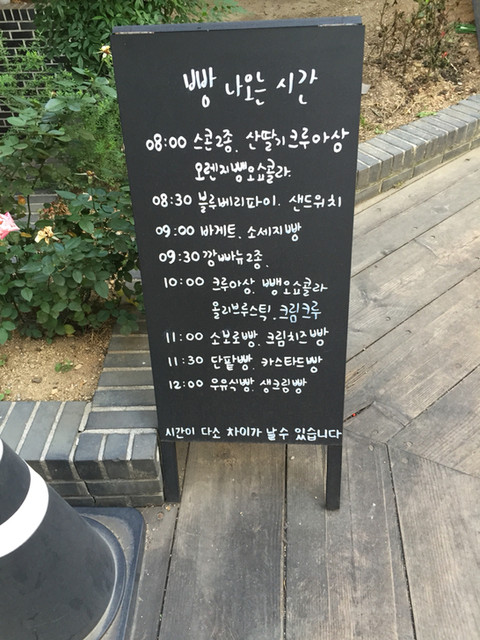 빵 나오는 시간
08:00 스콘2종. 산딸기크루아상
오렌지빵오쇼콜라
08:30 블루베리파이. 샌드위치
09:00 바게트. 소세지빵
09:30 깜빠뉴2종.
10:00 크루아상. 뺑오쇼콜라
올리브루스틱. 크림크루
11:00 소보로빵. 크림치즈빵
11:30 단팥빵. 카스타드빵
12:00 우유식빵. 생크림빵
시간이 다소 차이가 날수 있습니다